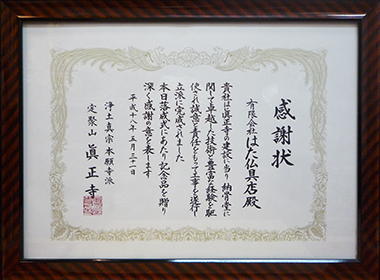 感謝状
有限会社はた仏具店殿
貴社は眞正寺の建設に当り納骨堂に
関して卓越した技術と豊富な経験を駆
使され誠意と責任をもって工事を遂行し
立派に完成されました
本日落成式にあたり記念品を贈り
深く感謝の意を表します
平成十八年五月三十一日
浄土真宗本願寺派
定聚山 眞正寺